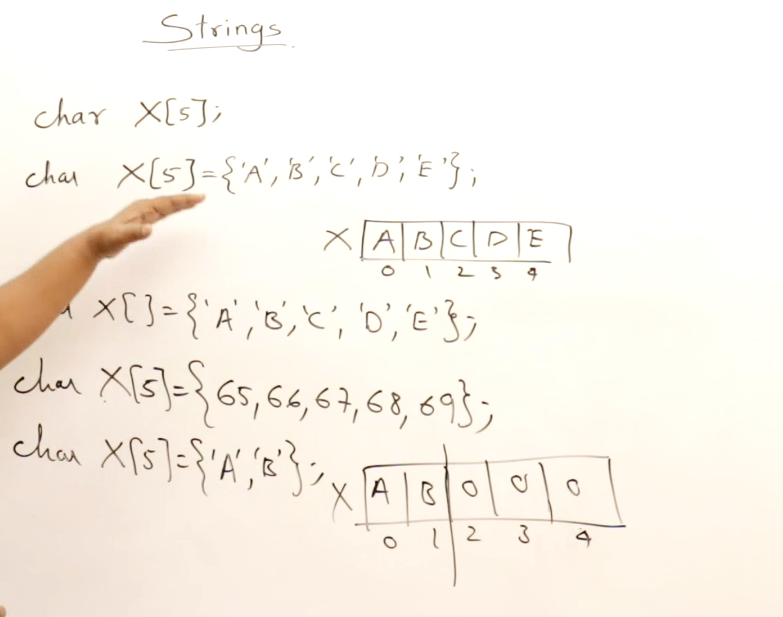 Strings
char X[5];
char X[5]={'A','B','C','D','E'};
X A B C D E
0 1 2 3 4
X[]={'A','B','C','D','E'};
char X[5]={65,66,67,68,69};
char X[5]={'A','B'};
X A B 0 0 0
0 1 2 3 4